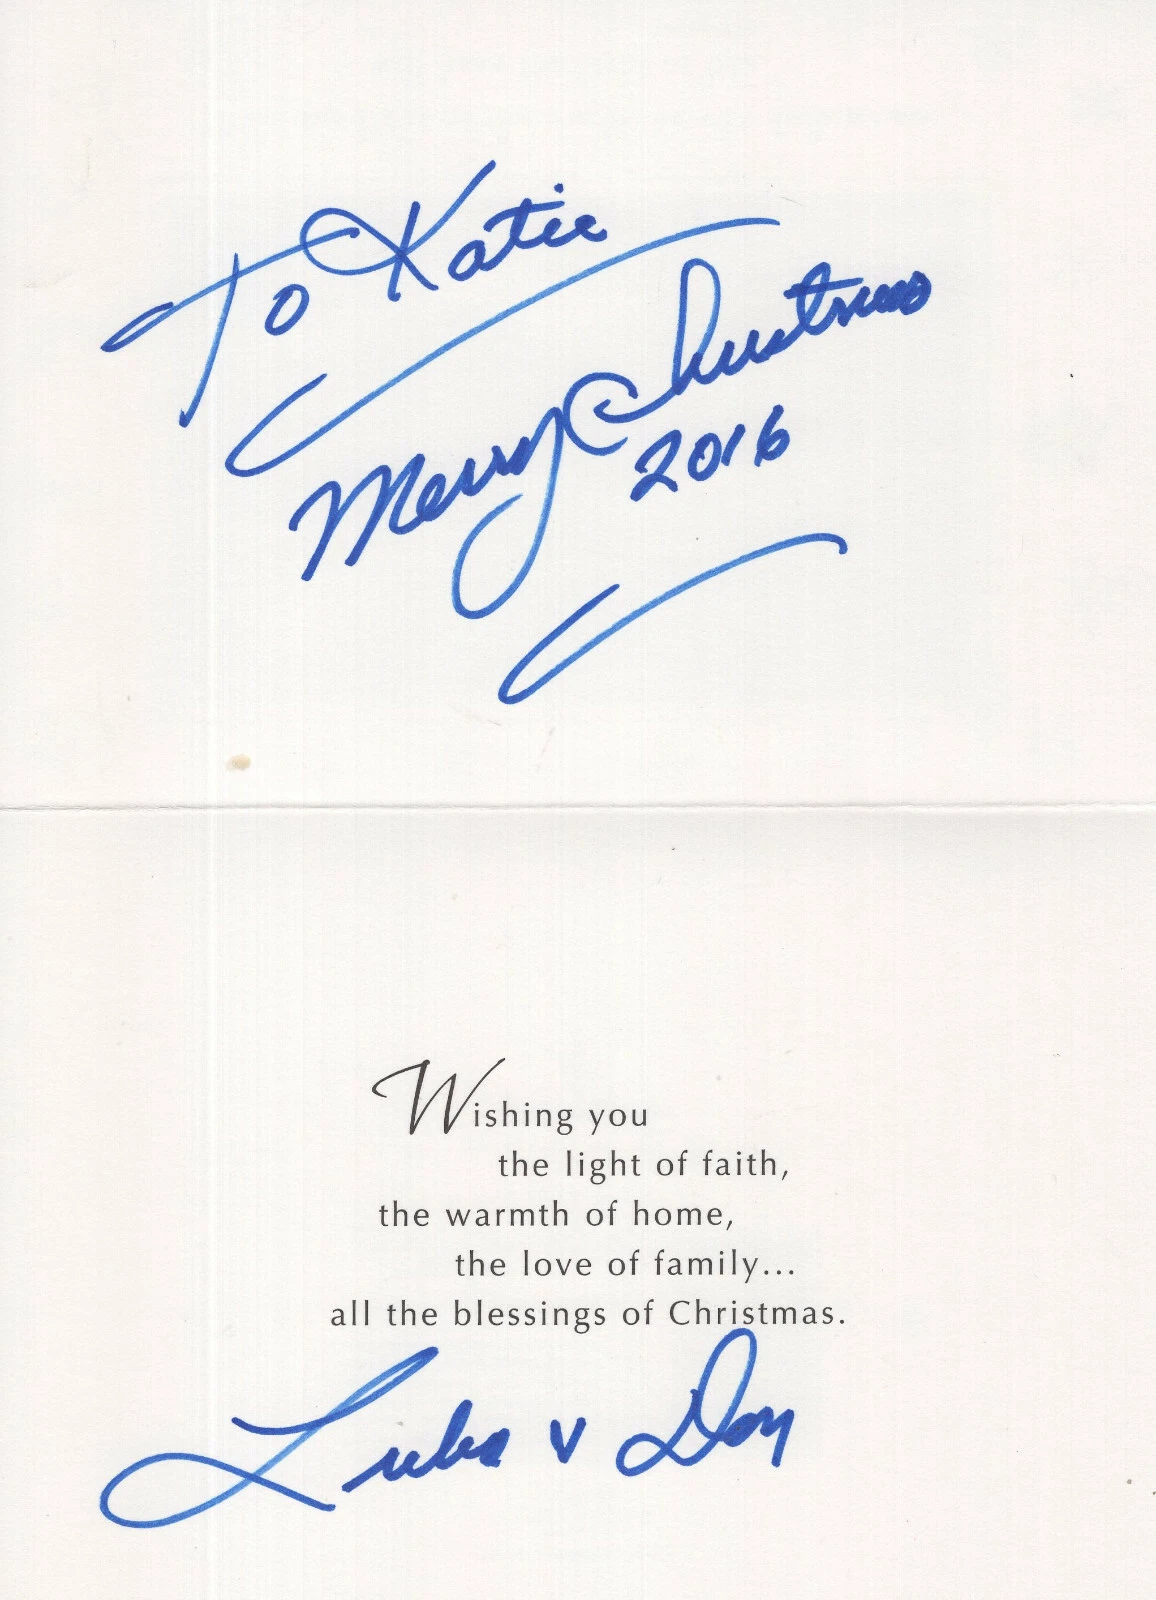 To Katie
Merry Christmas
2016
Wishing you
the light of faith,
the warmth of home,
the love of family...
all the blessings of Christmas.
Luba v Don